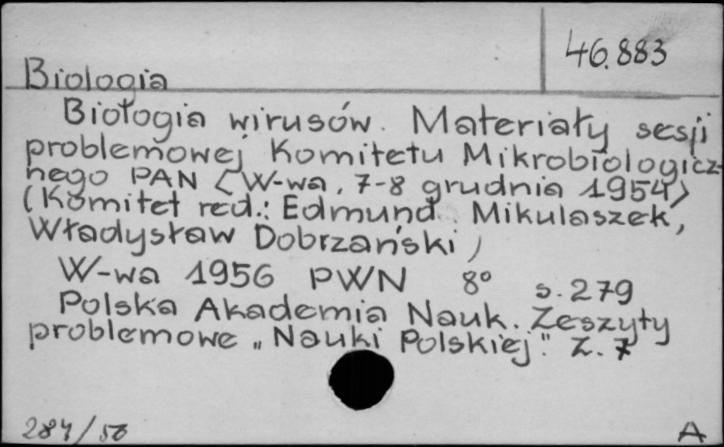 46.883
Biologia
Biologia wirusów. Materiały sesji
problemowej Komitetu Mikrobiologicz-
nego PAN <W-wa, 7-8 grudnia 1954>
(Komitet red.: Edmund Mikulaszek,
Władysław Dobrzański)
W-wa 1956 PWN 8° s. 279
Polska Akademia Nauk. Zeszyty
problemowe „Nauki Polskiej." Z. 7
284/56 A